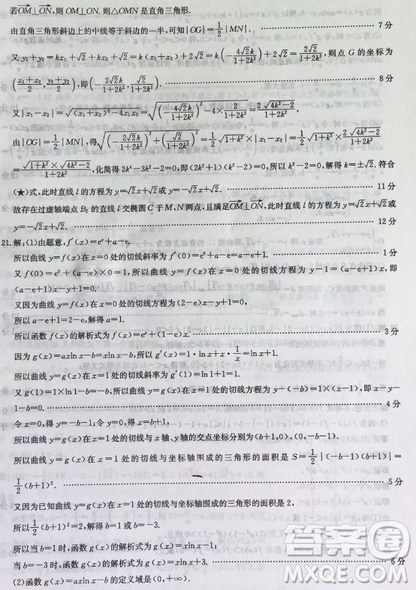 若OM⊥ON,则 OM⊥ON,则△OMN 是直角三角形.
由直角三角形斜边上的中线等于斜边的一半,可知|OG|=1/2|MN|. 7分
又 y₁+y₂=kx₁+√2+kx₂+√2=k(x₁+x₂)+2√2=k(-4√2k/(1+2k²))+2√2=2√2/(1+2k²),则点 G 的坐标为
((x₁+x₂)/2,(y₁+y₂)/2),即(-2√2k/(1+2k²),√2/(1+2k²)). 8分
又|x₁-x₂|=√((x₁+x₂)²-4x₁x₂)=√((-4√2k/(1+2k²))²-4×2/(1+2k²))=2√(4k²-2)/(1+2k²),
由|OG|=1/2|MN|,得√((-2√2k/(1+2k²))²+(√2/(1+2k²))²)=1/2√(1+k²)×|x₁-x₂|=1/2√(1+k²)×2√(4k²-2)/(1+2k²)
=√(1+k²)×√(4k²-2)/(1+2k²),化简得 2k⁴-3k²-2=0,即(2k²+1)(k²-2)=0,所以 k²-2=0,解得 k=±√2.符合
(★)式,此时直线 l 的方程为 y=√2x+√2或 y=-√2x+√2. 11分
故存在过虚轴端点 B₂的直线 l 交椭圆 C 于 M,N 两点,且满足OM⊥ON,此时直线 l 的方程为 y=√2x+√2或
y=-√2x+√2. 12分
21.解:(1)由题意,f′(x)=eˣ+a-e,
所以曲线 y=f(x)在 x=0 处的切线斜率为 f′(0)=e⁰+a-e=a-e+1. 1分
又 f(0)=e⁰+(a-e)×0=1,所以曲线 y=f(x)在 x=0 处的切线方程为 y-1=(a-e+1)(x-0),即(a-
e+1)x-y+1=0.
又因为曲线 y=f(x)在 x=0 处的切线方程为(2-e)x-y+1=0,
所以 a-e+1=2-e,解得 a=1.
所以函数 f(x)的解析式为 f(x)=eˣ+(1-e)x. 3分
因为 g(x)=axln x-b=xln x-b,所以 g′(x)=1·ln x+x·1/x=ln x+1.
所以曲线 y=g(x)在 x=1 处的切线斜率为 g′(1)=ln1+1=1.
又 g(1)=1×ln 1-b=-b,所以曲线 y=g(x)在 x=1 处的切线方程为 y-(-b)=1×(x-1),即 x-y-
1-b=0. 4分
令 x=0,得 y=-b-1;令 y=0,得 x=b+1.
所以曲线 y=g(x)在 x=1 处的切线与 x 轴,y 轴的交点坐标分别为(b+1,0),(0,-b-1).
所以曲线 y=g(x)在 x=1 处的切线与坐标轴围成的三角形的面积是 S=1/2|(-b-1)(b+1)|=
1/2(b+1)². 5分
又因为已知曲线 y=g(x)在 x=1 处的切线与坐标轴围成的三角形的面积是 2.
所以1/2(b+1)²=2,解得 b=1 或 b=-3.
所以当 b=1 时,函数 g(x)的解析式为 g(x)=xln x-1.
当 b=-3 时,函数 g(x)的解析式为 g(x)=xln x+3. 6分
(2)函数 g(x)=axln x-b 的定义域是(0,+∞).